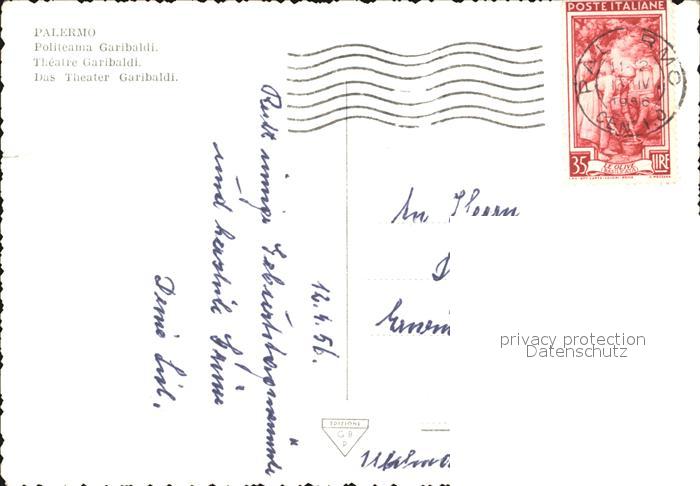 PALERMO
Politeama Garibaldi.
Théatre Garibaldi.
Das Theater Garibaldi.
POSTE ITALIANE
PALERMO
1956
CENTRO
35 LIRE
LE OLIVE
12.4.56.
innige Geburtstagswünsche
und herzliche Grüsse
Deine Lisl.
An Herrn
privacy protection
Datenschutz
EDIZIONI
G B
P